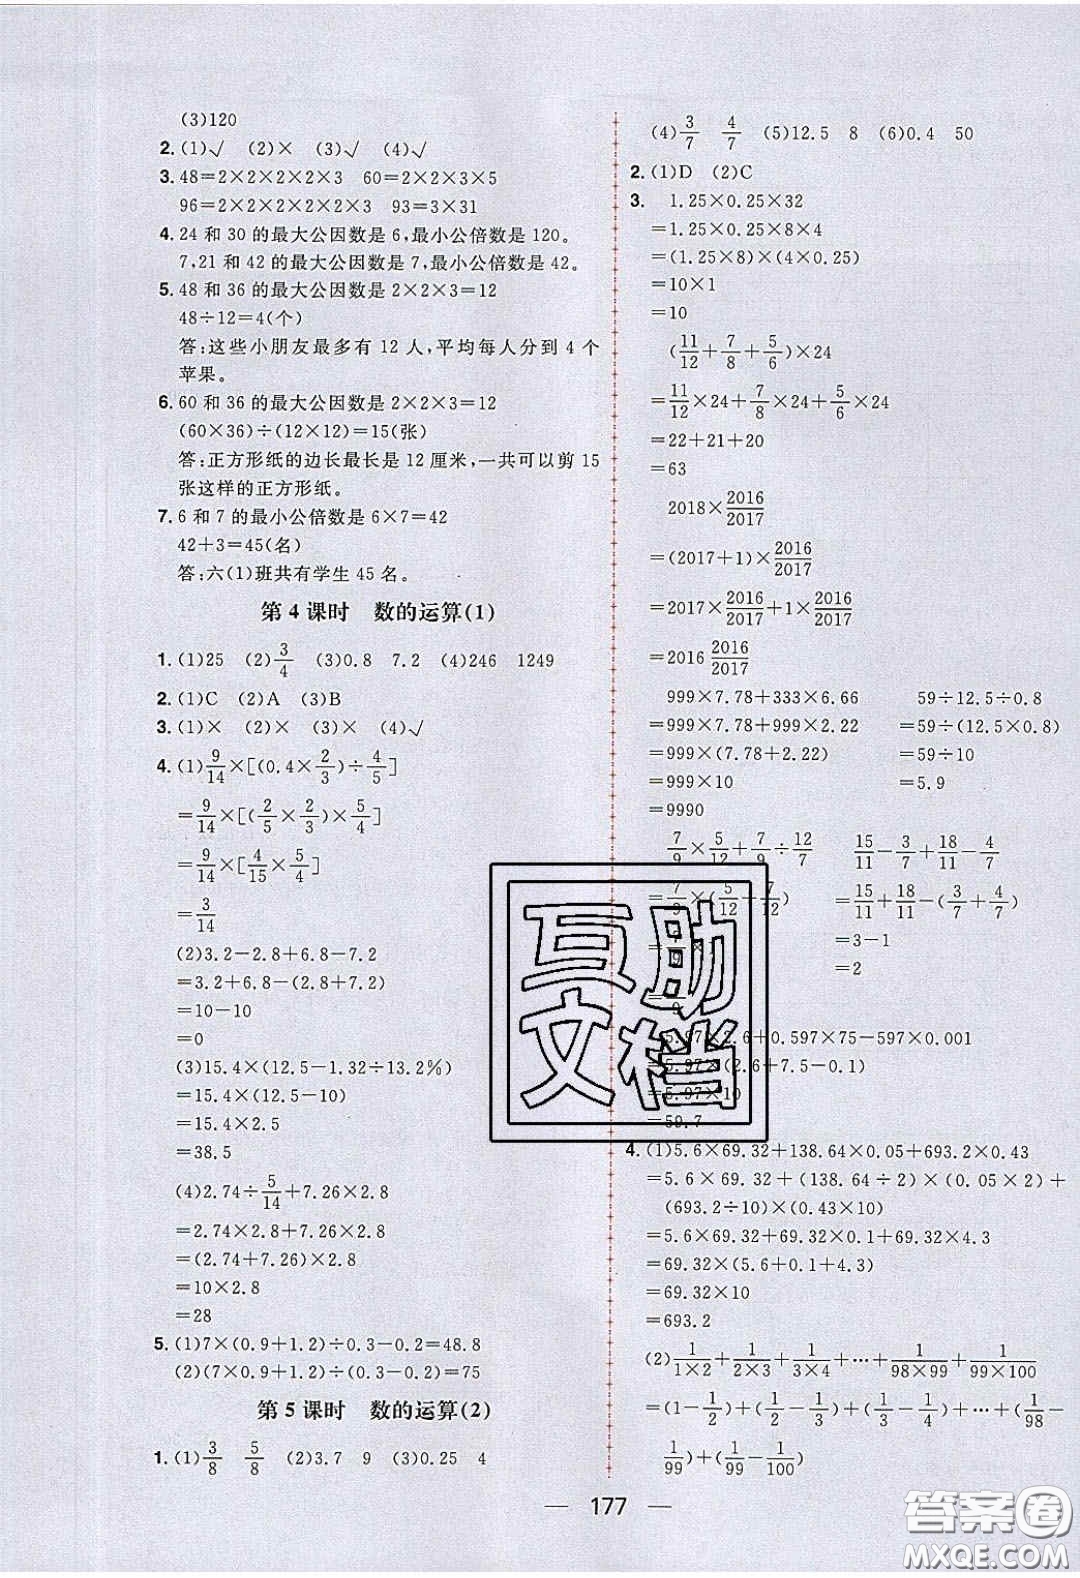 (3)120
2. (1)√ (2)× (3)√ (4)√
3. 48=2×2×2×2×3 60=2×2×3×5
96=2×2×2×2×2×3 93=3×31
4. 24 和 30 的最大公因数是 6,最小公倍数是 120。
7,21 和 42 的最大公因数是 7,最小公倍数是 42。
5. 48 和 36 的最大公因数是 2×2×3=12
48÷12=4(个)
答:这些小朋友最多有 12 人,平均每人分到 4 个
苹果。
6. 60 和 36 的最大公因数是 2×2×3=12
(60×36)÷(12×12)=15(张)
答:正方形纸的边长最长是 12 厘米,一共可以剪 15
张这样的正方形纸。
7. 6 和 7 的最小公倍数是 6×7=42
42+3=45(名)
答:六(1)班共有学生 45 名。
第 4 课时 数的运算(1)
1. (1)25 (2)3/4 (3)0.8 7.2 (4)246 1249
2. (1)C (2)A (3)B
3. (1)× (2)× (3)× (4)√
4. (1)9/14×[(0.4×2/3)÷4/5]
=9/14×[(2/5×2/3)×5/4]
=9/14×[4/15×5/4]
=3/14
(2)3.2−2.8+6.8−7.2
=3.2+6.8−(2.8+7.2)
=10−10
=0
(3)15.4×(12.5−1.32÷13.2%)
=15.4×(12.5−10)
=15.4×2.5
=38.5
(4)2.74÷5/14+7.26×2.8
=2.74×2.8+7.26×2.8
=(2.74+7.26)×2.8
=10×2.8
=28
5. (1)7×(0.9+1.2)÷0.3−0.2=48.8
(2)(7×0.9+1.2)÷(0.3−0.2)=75
第 5 课时 数的运算(2)
1. (1)3/8 5/8 (2)3.7 9 (3)0.25 4
(4)3/7 4/7 (5)12.5 8 (6)0.4 50
2. (1)D (2)C
3. 1.25×0.25×32
=1.25×0.25×8×4
=(1.25×8)×(4×0.25)
=10×1
=10
(11/12+7/8+5/6)×24
=11/12×24+7/8×24+5/6×24
=22+21+20
=63
2018×2016/2017
=(2017+1)×2016/2017
=2017×2016/2017+1×2016/2017
=2016 2016/2017
999×7.78+333×6.66 59÷12.5÷0.8
=999×7.78+999×2.22 =59÷(12.5×0.8)
=999×(7.78+2.22) =59÷10
=999×10 =5.9
=9990
7/9×5/12+7/9÷12/7 15/11−3/7+18/11−4/7
=7/9×(5/12+7/12) =15/11+18/11−(3/7+4/7)
=7/9×1 =3−1
=2
5.97×2.6+0.597×75−597×0.001
=5.97×(2.6+7.5−0.1)
=5.97×10
=59.7
4. (1)5.6×69.32+138.64×0.05+693.2×0.43
=5.6×69.32+(138.64÷2)×(0.05×2)+
(693.2÷10)×(0.43×10)
=5.6×69.32+69.32×0.1+69.32×4.3
=69.32×(5.6+0.1+4.3)
=69.32×10
=693.2
(2)1/1×2+1/2×3+1/3×4+…+1/98×99+1/99×100
=(1−1/2)+(1/2−1/3)+(1/3−1/4)+…+(1/98−
1/99)+(1/99−1/100)
互助
文档
177
答案圈
MXQE.COM